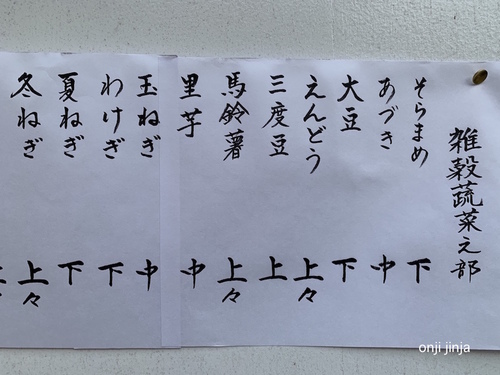 雑穀蔬菜之部
そらまめ 下
あづき 中
大豆 下
えんどう 上々
三度豆 上
馬鈴薯 上々
里芋 中
玉ねぎ 中
わけぎ 下
夏ねぎ 下
冬ねぎ 上々
onji jinja